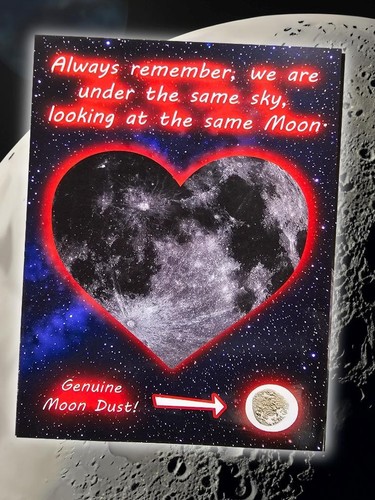 Always remember, we are
under the same sky,
looking at the same Moon
Genuine
Moon Dust!